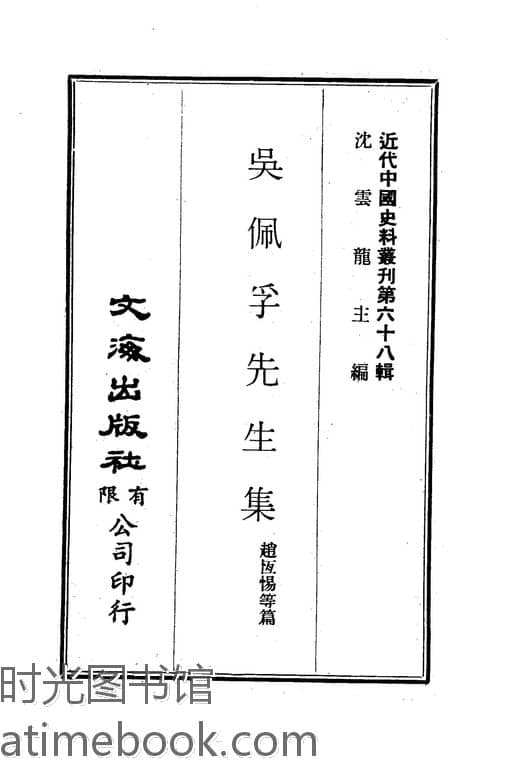 近代中國史料叢刊第六十八輯
沈雲龍主編
吳佩孚先生集
趙恆惕等篇
文海出版社
有限
公司印行
时光图书馆
atimebook.com